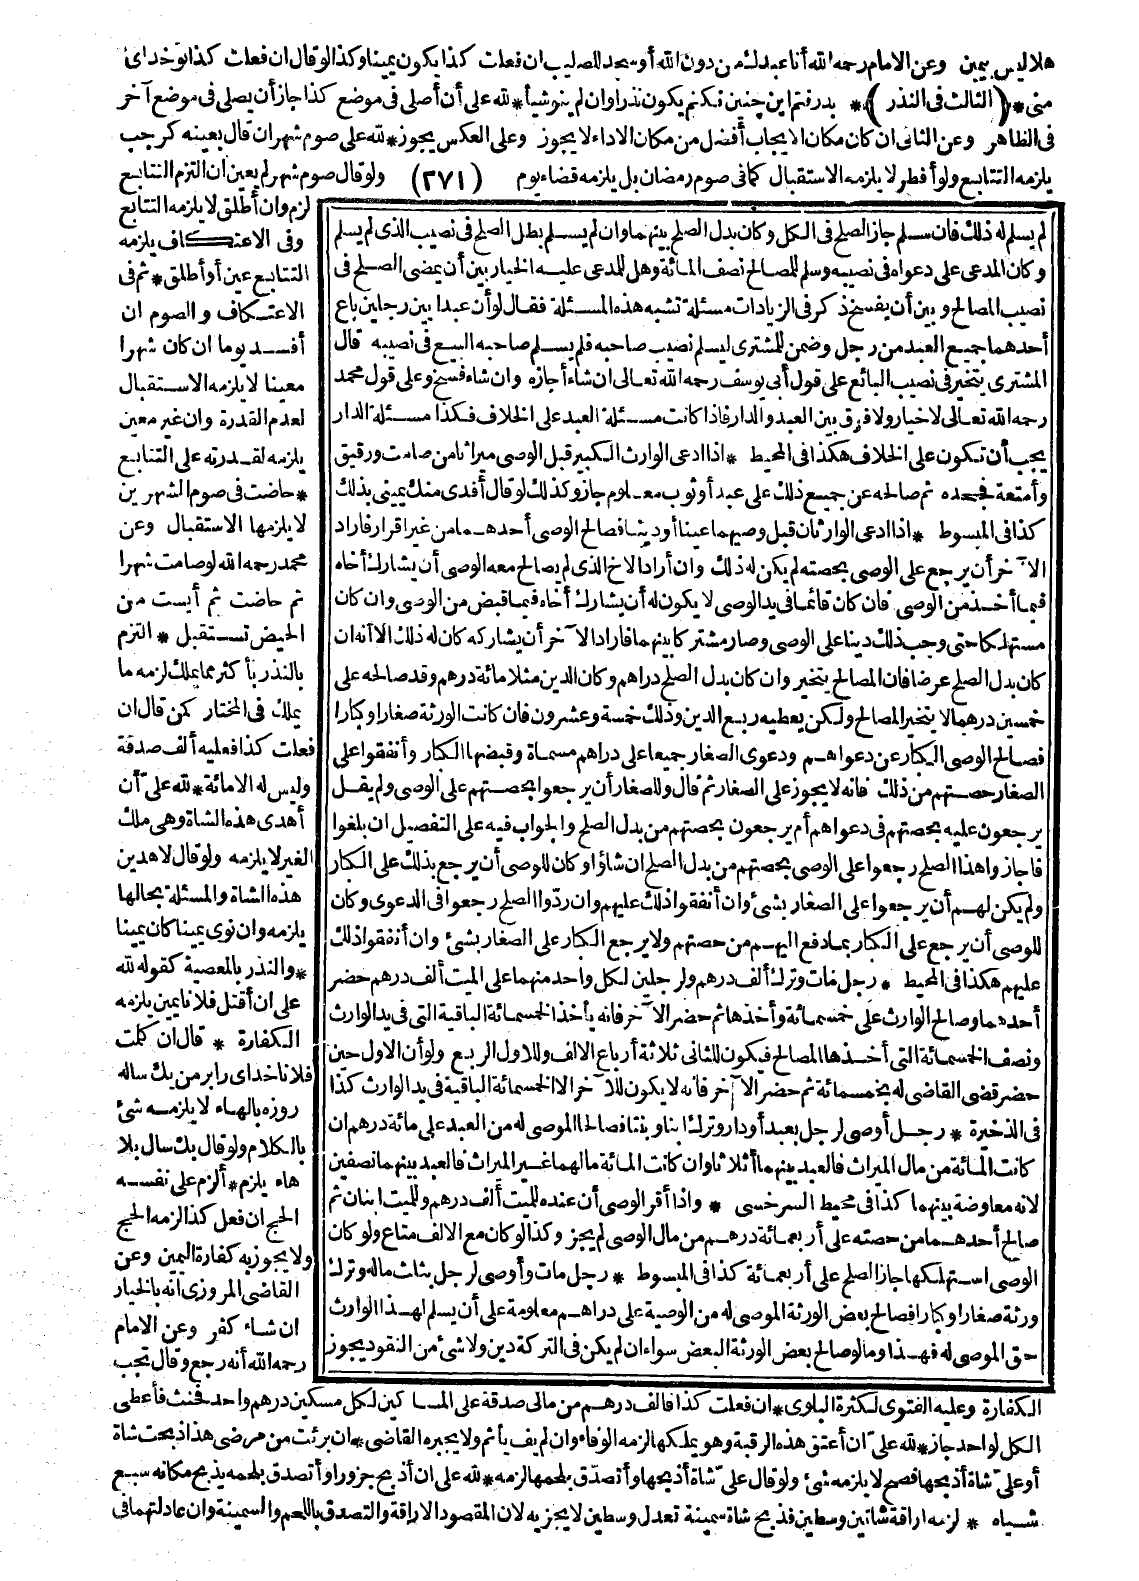 هلا ليس بيمين وعن الامام رحمه الله أنا عبدك من دون الله أو سجد للصليب ان فعلت كذا يكون يمينا وكذا لو قال ان فعلت كذا نوخداى
منى * (الثالث فى النذر) * بدرفتم اين چنين نكنم يكون نذرا وان لم ينو شيأ * لله على أن أصلى فى موضع كذا جاز أن يصلى فى موضع آخر
فى الظاهر وعن الثانى ان كان مكان الايجاب أفضل من مكان الاداء لا يجوز وعلى العكس يجوز * لله على صوم شهر ان قال بعينه كرجب
يلزمه التتابع ولو أفطر لا يلزمه الاستقبال كما فى صوم رمضان بل يلزمه قضاء يوم (٢٧١) ولو قال صوم شهر لم يعين ان التزم التتابع
لزم وان أطلق لا يلزمه التتابع
وفى الاعتكاف يلزمه
التتابع عين أو أطلق * ثم فى
الاعتكاف والصوم ان
أفسد يوما ان كان شهرا
معينا لا يلزمه الاستقبال
لعدم القدرة وان غير معين
يلزمه لقدرته على التتابع
* حاضت فى صوم الشهرين
لا يلزمها الاستقبال وعن
محمد رحمه الله لو صامت شهرا
ثم حاضت ثم أيست من
الحيض تستقبل * التزم
بالنذر بأكثر مما يملك لزمه ما
يملك فى المختار كمن قال ان
فعلت كذا فعليه ألف صدقة
وليس له الا مائة * لله علىّ أن
أهدى هذه الشاة وهى ملك
الغير لا يلزمه ولو قال لاهدين
هذه الشاة والمسئلة بحالها
يلزمه وان نوى يمينا كان يمينا
* والنذر بالمعصية كقوله لله
على ان أقتل فلانا يمين يلزمه
الكفارة * قال ان كلمت
فلانا خداى را بر من يك ساله
روزه بالهاء لا يلزمه شئ
بالكلام ولو قال يك سال بلا
هاء يلزم * ألزم على نفسه
الحج ان فعل كذا لزمه الحج
ولا يجوز به كفارة اليمين وعن
القاضى المروزى انه بالخيار
ان شاء كفر وعن الامام
رحمه الله أنه رجع وقال تجب
لم يسلم له ذلك فان سلم جاز الصلح فى الكل وكان بدل الصلح بينهما وان لم يسلم بطل الصلح فى نصيب الذى لم يسلم
وكان المدعى على دعواه فى نصيبه وسلم للمصالح نصف المائة وهل للمدعى عليه الخيار بين أن يمضى الصلح فى
نصيب المصالح وبين أن يفسخ ذكر فى الزيادات مسئلة تشبه هذه المسئلة فقال لو أن عبدا بين رجلين باع
أحدهما جميع العبد من رجل وضمن للمشترى ليسلم نصيب صاحبه فلم يسلم صاحبه البيع فى نصيبه قال
المشترى يتخير فى نصيب البائع على قول أبى يوسف رحمه الله تعالى ان شاء أجازه وان شاء فسخ وعلى قول محمد
رحمه الله تعالى لا خيار ولا فرق بين العبد والدار فاذا كانت مسئلة العبد على الخلاف فكذا مسئلة الدار
يجب أن تكون على الخلاف هكذا فى المحيط * اذا ادعى الوارث الكبير قبل الوصى ميراثا من صامت ورقيق
وأمتعة فجحده ثم صالحه عن جميع ذلك على عبد أو ثوب معلوم جاز وكذلك لو قال أفدى منك يمينى بذلك
كذا فى المبسوط * اذا ادعى الوارثان قبل وصيهما عينا أو دينا فصالح الوصى أحدهما من غير اقرار فاراد
الآخر أن يرجع على الوصى بحصته لم يكن له ذلك وان أراد الاخ الذى لم يصالح معه الوصى أن يشارك أخاه
فيما أخذ من الوصى فان كان قائما فى يد الوصى لا يكون له أن يشارك أخاه فيما قبض من الوصى وان كان
مستهلكا حتى وجب ذلك دينا على الوصى وصار مشتركا بينهما فاراد الآخر أن يشاركه كان له ذلك الا أنه ان
كان بدل الصلح عرضا فان المصالح يتخير وان كان بدل الصلح دراهم وكان الدين مثلا مائة درهم وقد صالحه على
خمسين درهما لا يتخير المصالح ولكن يعطيه ربع الدين وذلك خمسة وعشرون فان كانت الورثة صغارا وكبارا
فصالح الوصى الكبار عن دعواهم ودعوى الصغار جميعا على دراهم مسماة وقبضها الكبار وأنفقوا على
الصغار حصتهم من ذلك فانه لا يجوز على الصغار ثم قال وللصغار أن يرجعوا بحصتهم على الوصى ولم يقل
يرجعون عليه بحصتهم فى دعواهم أم يرجعون بحصتهم من بدل الصلح والجواب فيه على التفصيل ان بلغوا
فاجازوا هذا الصلح رجعوا على الوصى بحصتهم من بدل الصلح ان شاؤا وكان للوصى أن يرجع بذلك على الكبار
ولم يكن لهم أن يرجعوا على الصغار بشئ وان أنفقوا ذلك عليهم وان ردّوا الصلح رجعوا فى الدعوى وكان
للوصى أن يرجع على الكبار بما دفع اليهم من حصتهم ولا يرجع الكبار على الصغار بشئ وان أنفقوا ذلك
عليهم هكذا فى المحيط * رجل مات وترك ألف درهم ولرجلين لكل واحد منهما على الميت ألف درهم حضر
أحدهما وصالح الوارث على خمسمائة وأخذها ثم حضر الآخر فانه يأخذ الخمسمائة الباقية التى فى يد الوارث
ونصف الخمسمائة التى أخذها المصالح فيكون للثانى ثلاثة أرباع الالف وللاول الربع ولو أن الاول حين
حضر قضى القاضى له بخمسمائة ثم حضر الآخر فانه لا يكون للآخر الا الخمسمائة الباقية فى يد الوارث كذا
فى الذخيرة * رجل أوصى لرجل بعبد أو دار وترك ابنا وبنتا فصالحا الموصى له من العبد على مائة درهم ان
كانت المائة من مال الميراث فالعبد بينهما أثلاثا وان كانت المائة مالهما غير الميراث فالعبد بينهما نصفين
لانه معاوضة بينهما كذا فى محيط السرخسى * واذا أقر الوصى أن عنده للميت ألف درهم وللميت ابنان ثم
صالح أحدهما من حصته على أربعمائة درهم من مال الوصى لم يجز وكذا لو كان مع الالف متاع ولو كان
الوصى استهلكها جاز الصلح على أربعمائة كذا فى المبسوط * رجل مات وأوصى لرجل بثلث ماله وترك
ورثة صغارا وكبارا فصالح بعض الورثة الموصى له من الوصية على دراهم معلومة على أن يسلم لهذا الوارث
حق الموصى له فهذا وما لو صالح بعض الورثة البعض سواء ان لم يكن فى التركة دين ولا شئ من النقود يجوز
الكفارة وعليه الفتوى لكثرة البلوى * ان فعلت كذا فالف درهم من مالى صدقة على المساكين لكل مسكين درهم واحد فحنث فأعطى
الكل لواحد جاز * لله علىّ ان أعتق هذه الرقبة وهو يملكها لزمه الوفاء وان لم يف يأثم ولا يجبره القاضى * ان برئت من مرضى هذا ذبحت شاة
أو علىّ شاة أذبحها فصح لا يلزمه شئ ولو قال علىّ شاة أذبحها وأتصدّق بلحمها لزمه * لله على ان أذبح جزورا وأتصدق بلحمه يذبح مكانه سبع
شياه * لزمه اراقة شاتين وسطين فذبح شاة سمينة تعدل وسطين لا يجزيه لان المقصود الاراقة والتصدق باللحم والسمينة وان عادلتهما فى